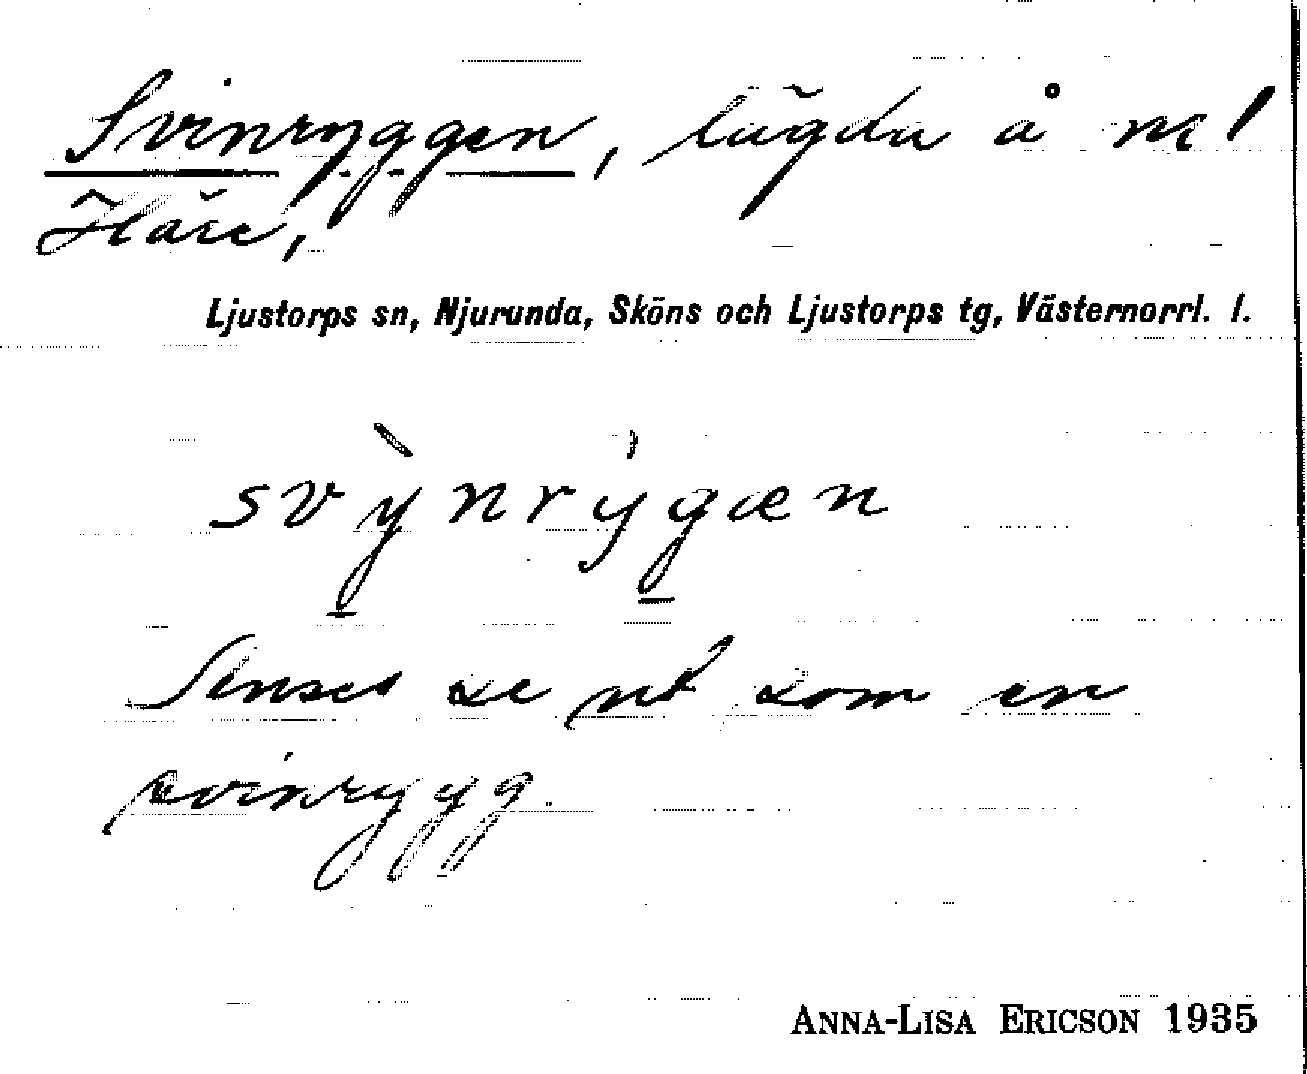 Svinryggen, lägda å nr 1
Håre,
Ljustorps sn, Njurunda, Sköns och Ljustorps tg, Västernorrl. l.
svỳnrýgæn
Anses se ut som en
svinrygg.
ANNA-LISA ERICSON 1935